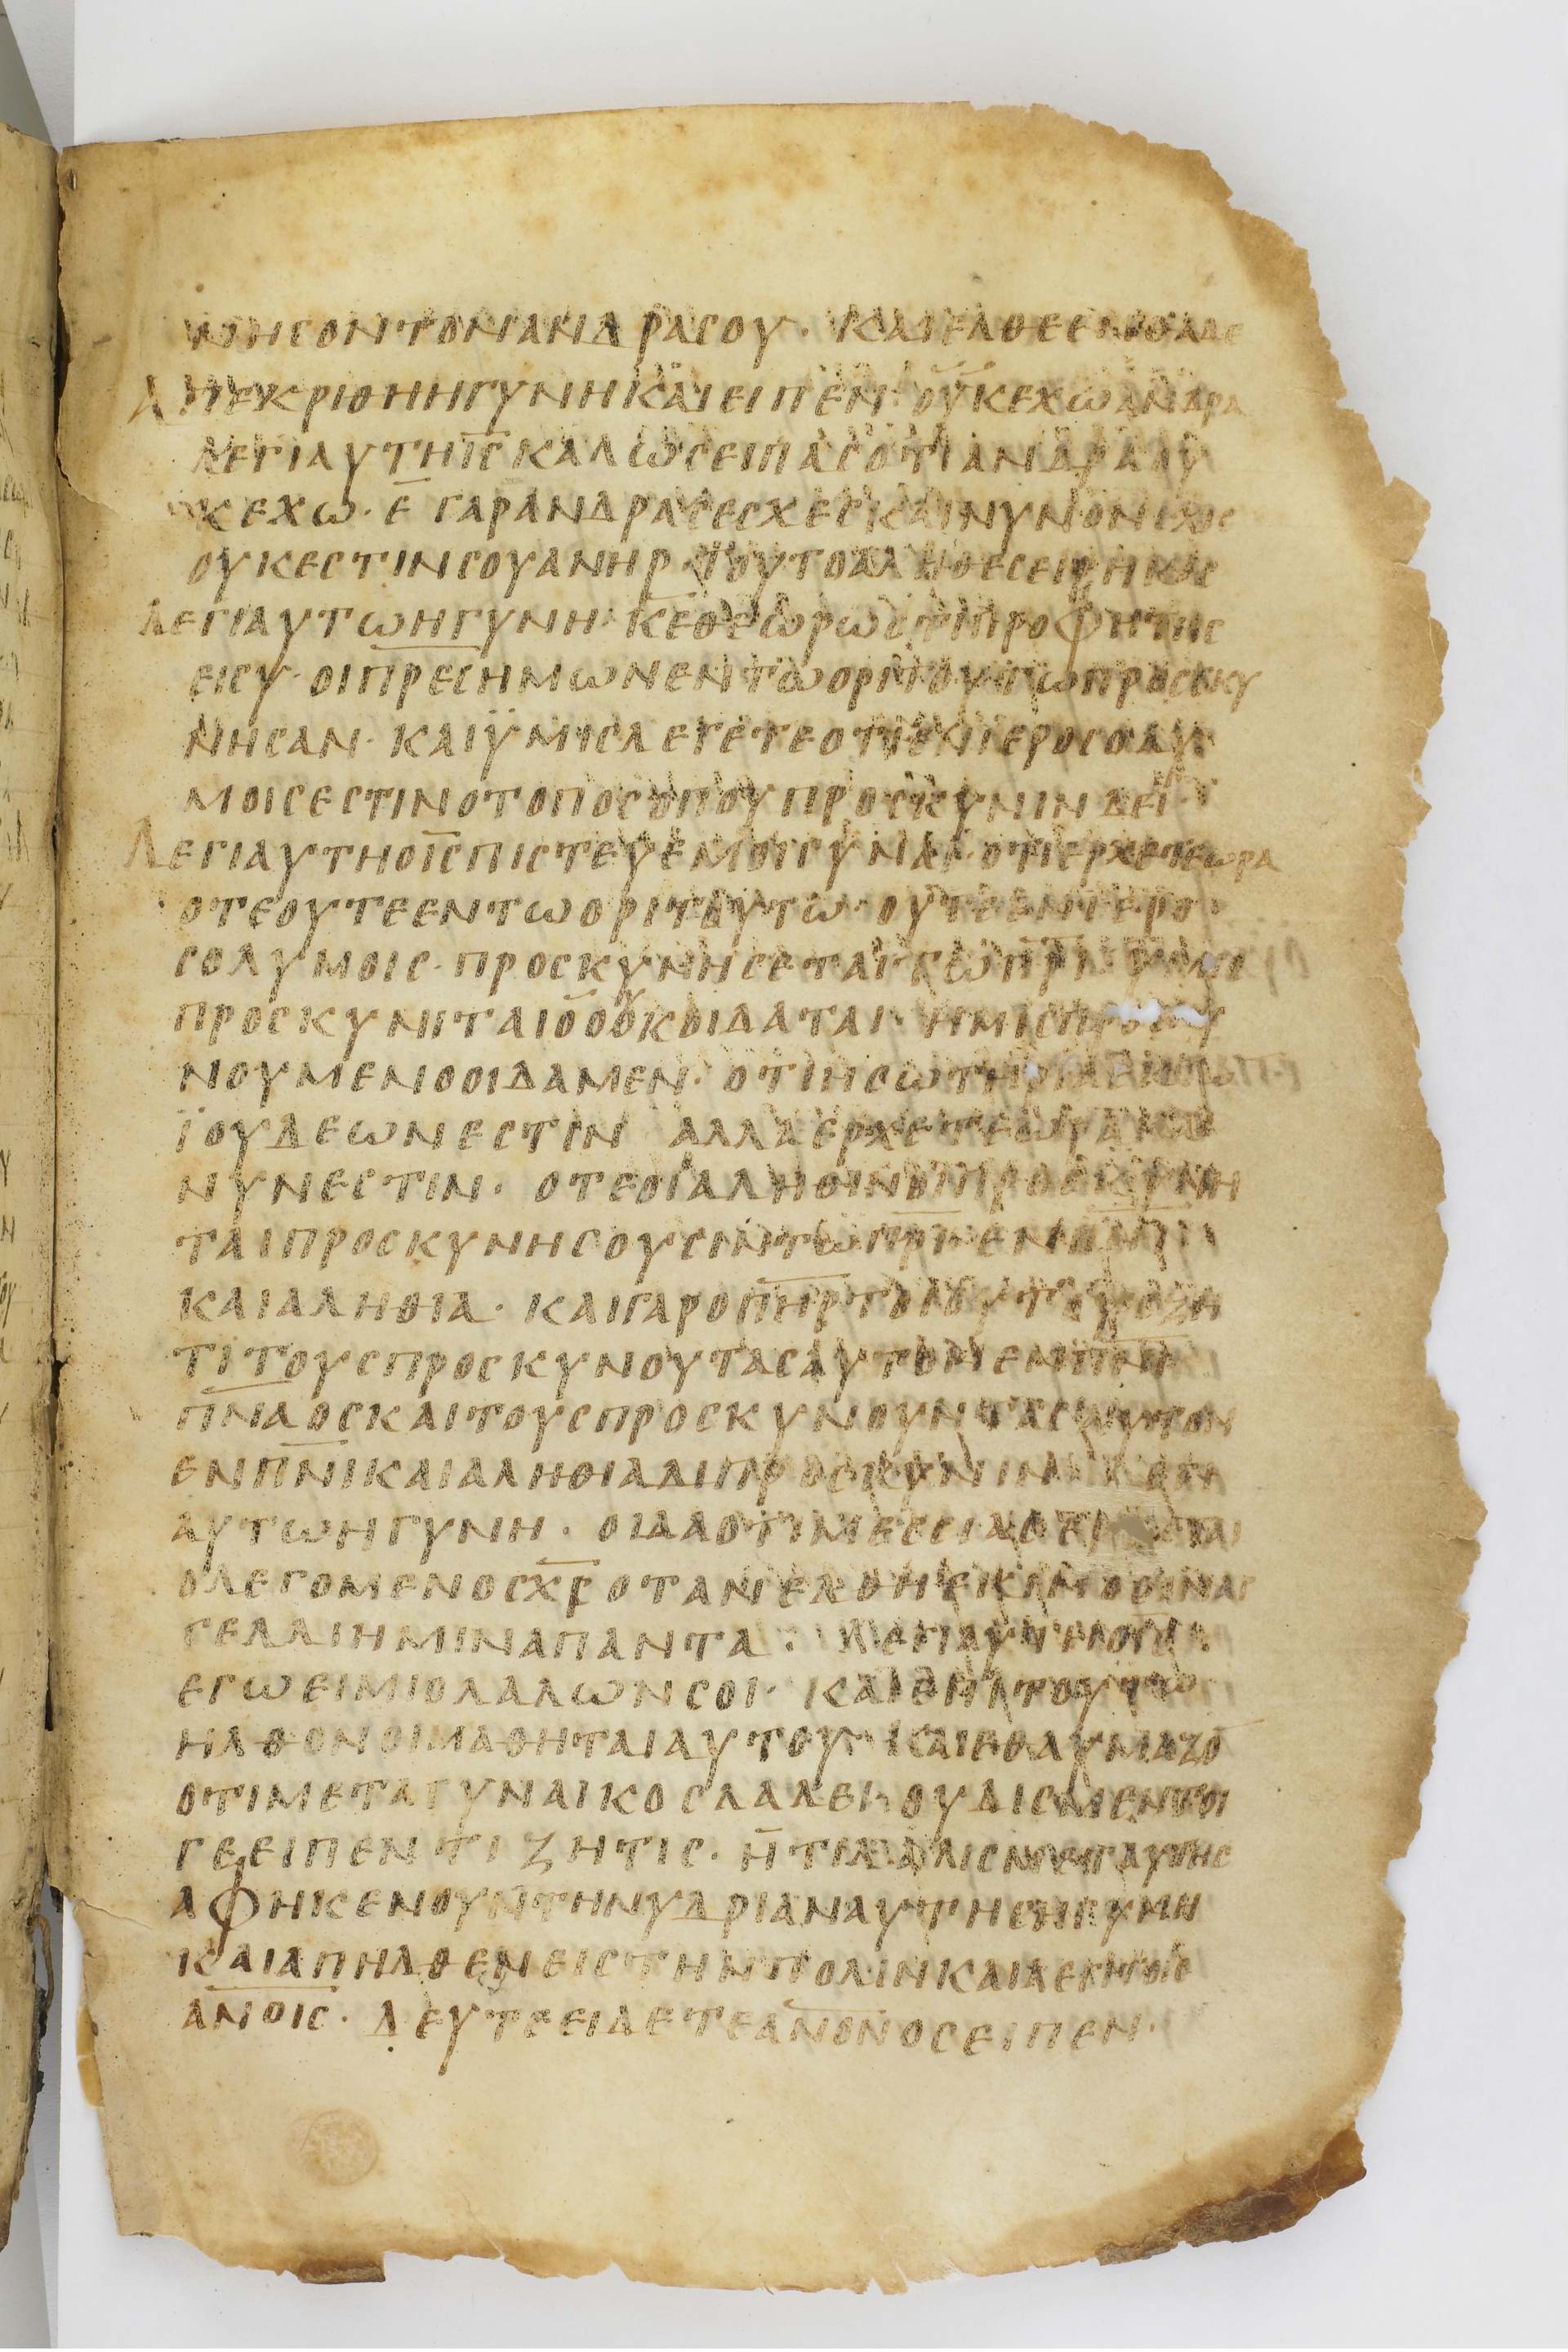 ΝΗϹΟΝ ΤΟΝ ΑΝΔΡΑ ϹΟΥ · ΚΑΙ ΕΛΘΕ ΕΝΘΑΔΕ
ΑΠΕΚΡΙΘΗ Η ΓΥΝΗ ΚΑΙ ΕΙΠΕΝ ΟΥΚ ΕΧΩ ΑΝΔΡΑ
ΛΕΓΙ ΑΥΤΗ ΙϹ ΚΑΛΩϹ ΕΙΠΑϹ ΟΤΙ ΑΝΔΡΑ ΟΥ
Κ ΕΧΩ · Ε ΓΑΡ ΑΝΔΡΑϹ ΕϹΧΕϹ ΚΑΙ ΝΥΝ ΟΝ ΕΧΙϹ
ΟΥΚ ΕϹΤΙΝ ϹΟΥ ΑΝΗΡ · ΤΟΥΤΟ ΑΛΗΘΕϹ ΕΙΡΗΚΑϹ
ΛΕΓΙ ΑΥΤΩ Η ΓΥΝΗ · ΚΕ ΘΕΩΡΩ ΟΤΙ ΠΡΟΦΗΤΗϹ
ΕΙ ϹΥ · ΟΙ ΠΡΕϹ ΗΜΩΝ ΕΝ ΤΩ ΟΡΙ ΤΟΥΤΩ ΠΡΟϹΕΚΥ
ΝΗϹΑΝ · ΚΑΙ ΫΜΙϹ ΛΕΓΕΤΕ ΟΤΙ ΕΝ ΙΕΡΟϹΟΛΥ
ΜΟΙϹ ΕϹΤΙΝ Ο ΤΟΠΟϹ ΟΠΟΥ ΠΡΟϹΚΥΝΙΝ ΔΕΙ
ΛΕΓΙ ΑΥΤΗ Ο ΙϹ ΠΙϹΤΕΥΕ ΜΟΙ ΓΥΝΑΙ · ΟΤΙ ΕΡΧΕΤΕ ΩΡΑ
ΟΤΕ ΟΥΤΕ ΕΝ ΤΩ ΟΡΙ ΤΟΥΤΩ · ΟΥΤΕ ΕΝ ΙΕΡΟ
ϹΟΛΥΜΟΙϹ · ΠΡΟϹΚΥΝΗϹΕΤΑΙ ΤΩ ΠΡΙ ΥΜΙϹ
ΠΡΟϹΚΥΝΙΤΑΙ Ο ΟΥΚ ΟΙΔΑΤΑΙ · ΗΜΙϹ ΠΡΟϹΚΥ
ΝΟΥΜΕΝ Ο ΟΙΔΑΜΕΝ · ΟΤΙ Η ϹΩΤΗΡΙΑ ΕΚ ΤΩ
ΪΟΥΔΕΩΝ ΕϹΤΙΝ ΑΛΛΑ ΕΡΧΕΤΕ ΩΡΑ ΚΑΙ
ΝΥΝ ΕϹΤΙΝ · ΟΤΕ ΟΙ ΑΛΗΘΙΝΟΙ ΠΡΟϹΚΥΝΗ
ΤΑΙ ΠΡΟϹΚΥΝΗϹΟΥϹΙΝ ΤΩ ΠΡΙ ΕΝ ΠΝΙ
ΚΑΙ ΑΛΗΘΙΑ · ΚΑΙ ΓΑΡ Ο ΠΗΡ ΤΟΙΟΥΤΟΥϹ ΖΗ
ΤΙ ΤΟΥϹ ΠΡΟϹΚΥΝΟΥΤΑϹ ΑΥΤΟΝ ΕΝ ΠΝΙ
ΠΝΑ Ο ΘϹ ΚΑΙ ΤΟΥϹ ΠΡΟϹΚΥΝΟΥΝΤΑϹ ΑΥΤΟΝ
ΕΝ ΠΝΙ ΚΑΙ ΑΛΗΘΙΑ ΔΙ ΠΡΟϹΚΥΝΙΝ ΛΕΓΙ
ΑΥΤΩ Η ΓΥΝΗ · ΟΙΔΑ ΟΤΙ ΜΕϹϹΙΑϹ
Ο ΛΕΓΟΜΕΝΟϹ ΧϹ ΟΤΑΝ ΕΛΘΗ ΕΚΙΝΟϹ ΑΝΑΓ
ΓΕΛΛΙ ΗΜΙΝ ΑΠΑΝΤΑ : ΛΕΓΙ ΑΥΤΗ Ο ΙϹ
ΕΓΩ ΕΙΜΙ Ο ΛΑΛΩΝ ϹΟΙ · ΚΑΙ ΕΠΙ ΤΟΥΤΩ
ΗΛΘΟΝ ΟΙ ΜΑΘΗΤΑΙ ΑΥΤΟΥ ΚΑΙ ΕΘΑΥΜΑΖΟ
ΟΤΙ ΜΕΤΑ ΓΥΝΑΙΚΟϹ ΛΑΛΕΙ · ΟΥΔΙϹ ΜΕΝΤΟΙ
ΓΕ ΕΙΠΕΝ ΤΙ ΖΗΤΙϹ · Η ΤΙ ΛΑΛΙϹ ΜΕΤ ΑΥΤΗϹ
ΑΦΗΚΕΝ ΟΥΝ ΤΗΝ ΥΔΡΙΑΝ ΑΥΤΗϹ Η ΓΥΝΗ
ΚΑΙ ΑΠΗΛΘΕΝ ΕΙϹ ΤΗΝ ΠΟΛΙΝ ΚΑΙ ΛΕΓΙ ΤΟΙϹ
ΑΝΟΙϹ · ΔΕΥΤΕ ΕΙΔΕΤΕ ΑΝΟΝ ΟϹ ΕΙΠΕΝ ·